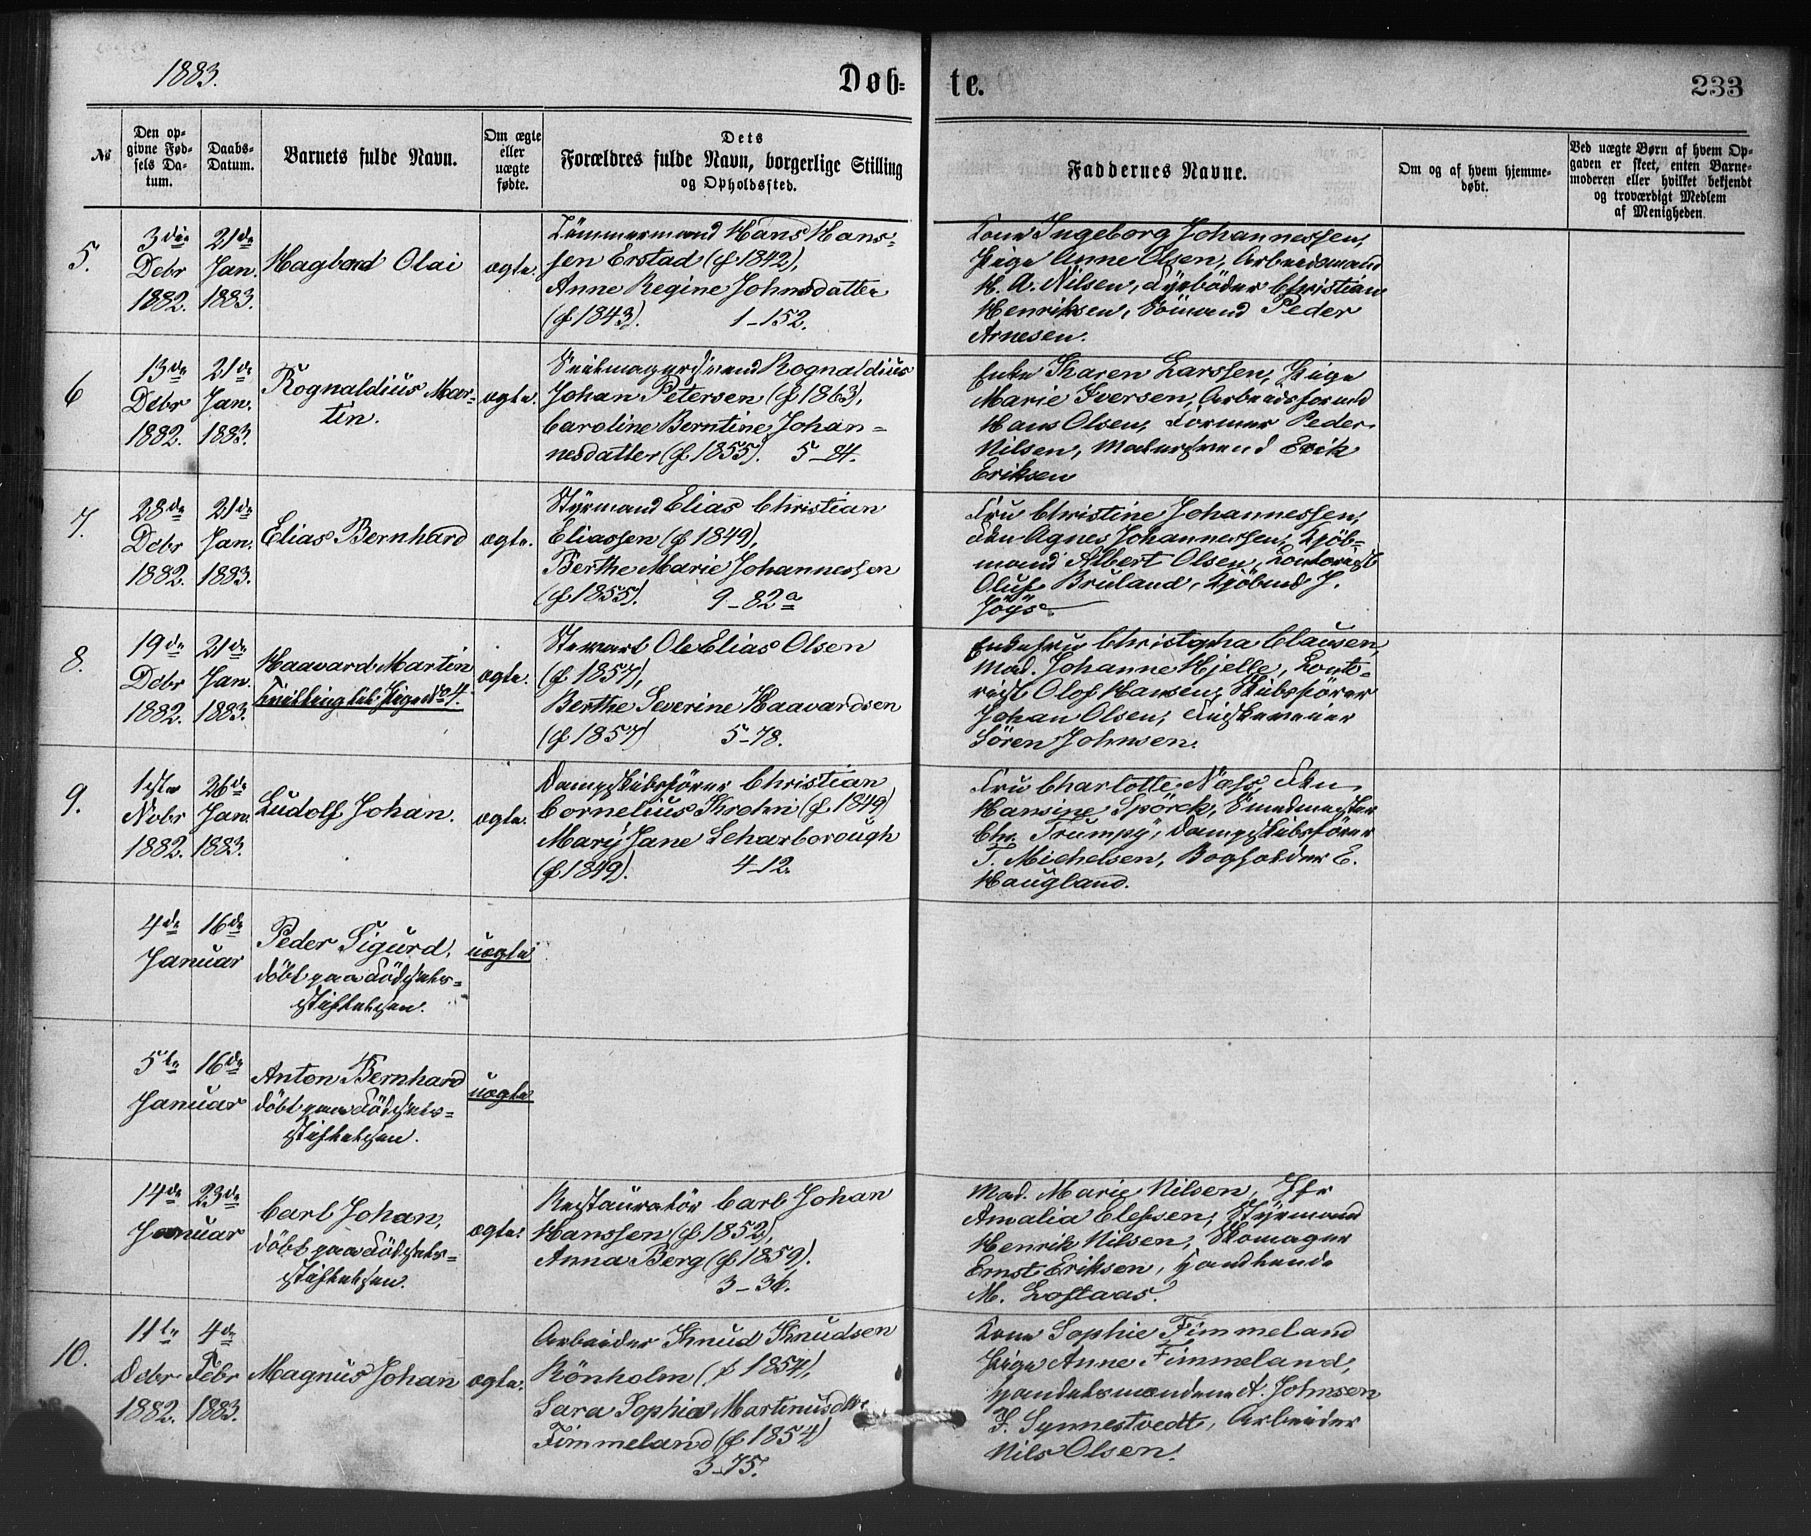 1883.
Døb=
te.
233
№
Den op=
givne Fød=
sels Da=
tum.
Daabs=
Datum.
Barnets fulde Navn.
Om ægte
eller
uægte
fødte.
Dets
Forældres fulde Navn, borgerlige Stilling
og Opholdssted.
Faddernes Navne.
Om og af hvem hjemme=
døbt.
Ved uægte Børn af hvem Op=
gaven er skeet, enten Barne=
moderen eller hvilket bekjendt
og troværdigt Medlem
af Menigheden.
5.
3die
Dcbr
1882.
21de
Jan.
1883.
Hagbard Olai
ægte.
Tömmermand Hans Hans=
sen Erstad (f 1842),
Anne Regine Johnsdatter
(f 1843). 1-152.
Kone Ingeborg Johannessen,
Pige Anne Olsen, Arbeidsmand
H. A. Nilsen, Fyrböder Christian
Henriksen, Sömand Peder
Arnesen.
6
13de
Dcbr
1882.
21de
Jan.
1883.
Rognaldius Mar=
tin.
ægte.
Seilmagersvend Rognaldius
Johan Petersen (f 1863),
Caroline Berntine Johan=
nesdatter (f 1855). 5-24.
Enke Karen Larssen, Pige
Marie Iversen, Arbeidsformd
Hans Olsen, Former Peder
Nilsen, Malersvend Erik
Eriksen
7.
28de
Dcbr
1882.
21de
Jan.
1883.
Elias Bernhard
ægte.
Styrmand Elias Christian
Eliassen (f 1849),
Berthe Marie Johannessen
(f 1855). 9-82a
Fru Christine Johannessen,
Frk Agnes Johannessen, Kjöb=
mand Albert Olsen, Kontorist
Oluf Bruland, Kjöbmd J.
Jöys
8.
19de
Dcbr
1882.
21de
Jan.
1883.
Haavard Martin
Tvilling til Pige No 4.
ægte.
Stewart Ole Elias Olsen
(f 1857),
Berthe Severine Haavardsen
(f 1857) 5-78.
Enkefru Christopha Clausen,
Mad. Johanne Hjelle, Konto=
rist Olof Hansen, Skibsförer
Johan Olsen, Fiskeveier
Sören Johnsen.
9.
1ste
Nobr
1882.
26de
Jan.
1883.
Ludolf Johan.
ægte.
Dampskibsförer Christian
Cornelius Krohn (f 1849)
Mary Jane Scharborough
(f 1849). 4-12.
Fru Charlotte Næss, Frk
Hansine Spörck, Smedmester
Chr. Trumpy, Dampskibsförer
T. Michelsen, Bogholder E.
Haugland.
4de 16de
Januar
Peder Sigurd,
döbt paa Födsels=
stiftelsen.
uægte
5te 16de
Januar
Anton Bernhard
döbt paa Födsels=
stiftelsen.
uægte
14de 23de
Januar
Carl Johan,
döbt paa Födsels=
stiftelsen.
ægte.
Restauratör Carl Johan
Hanssen (f 1852),
Anna Berg (f 1859).
3-36.
Mad. Marie Nilsen, Jfr
Amalia Ellefsen, Styrmand
Henrik Nilsen, Skomager
Ernst Eriksen, Handlende
M. Loftaas.
10.
11te
Dcbr
1882.
4de
Febr
1883.
Magnus Johan
ægte.
Arbeider Knud Knudsen
Rönholm (f 1854),
Sara Sophia Martinusdtr
Fimmeland (f 1854)
3-75.
Kone Sophie Fimmeland
Pige Anne Fimmeland,
Handelsmændene A. Johnsen
F. Synnestvedt, Arbeider
Nils Olsen.